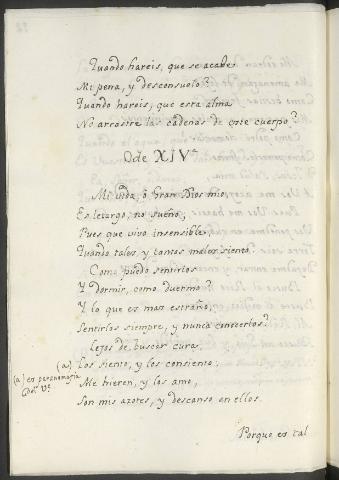 Quando hareis, que se acabe
Mi pena, y desconsuelo?
Quando hareis, que esta alma
No arrastre las cadenas de este cuerpo?
Ode XIVª
Mi vida, ô Gran Dios mio,
Es letargo, no sueño;
Pues que vivo insensible,
Quando tales, y tantos males siento.
Como puedo sentirlos
Y dormir, como duermo?
Y lo que es mas estraño,
Sentirlos siempre, y nunca conocerlos?
Lejos de buscar cura,
(a) Los siento, y los consiento;
(a) es paranomasia
Me hieren, y los amo,
Son mis azotes, y descanso en ellos.
Porque es tal